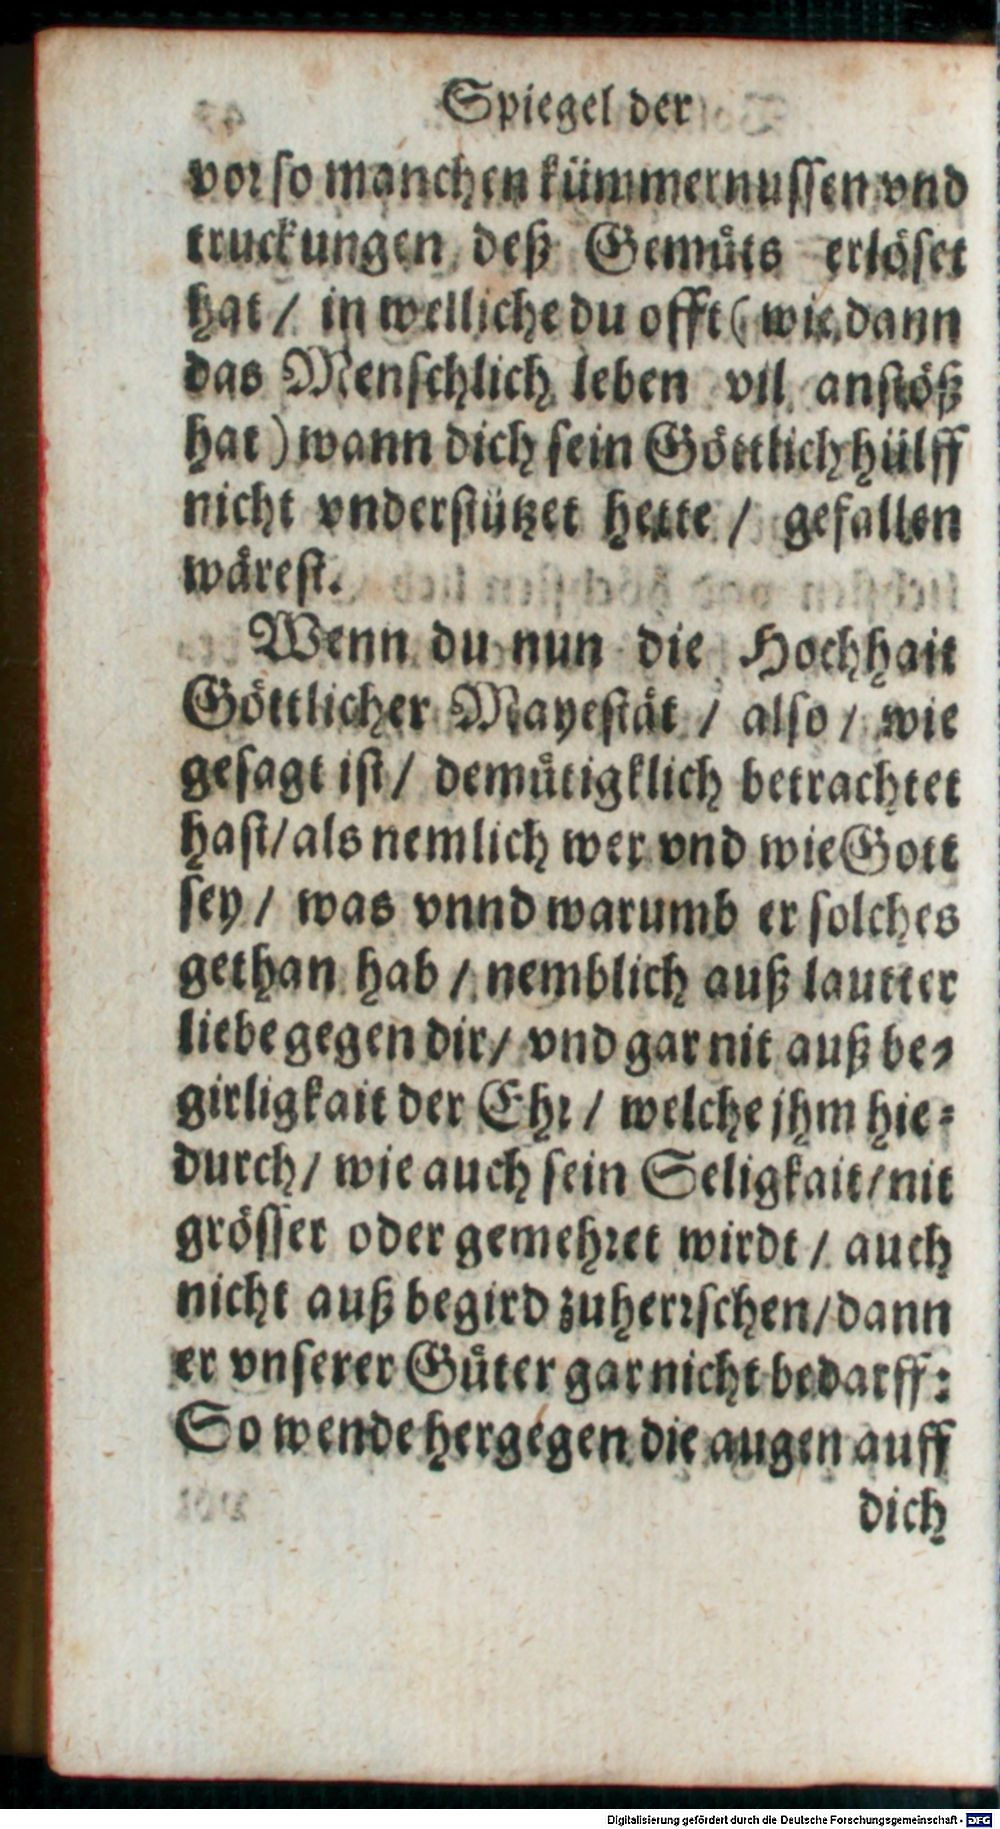 Spiegel der
vor so manchen kümmernussen vnd
truckungen deß Gemüts erlöset
hat / in welliche du offt ( wie dann
das Menschlich leben vil anstöß
hat ) wann dich sein Göttlich hülff
nicht vnderstützet hette / gefallen
wärest.
Wenn du nun die Hochhait
Göttlicher Mayestät / also / wie
gesagt ist / demütigklich betrachtet
hast / als nemlich wer vnd wie Gott
sey / was vnnd warumb er solches
gethan hab / nemblich auß lautter
liebe gegen dir / vnd gar nit auß be-
girligkait der Ehr / welche jhm hie-
durch / wie auch sein Seligkait / nit
grösser oder gemehret wirdt / auch
nicht auß begird zuherrschen / dann
er vnserer Güter gar nicht bedarff:
So wende hergegen die augen auff
dich
Digitalisierung gefördert durch die Deutsche Forschungsgemeinschaft - DFG